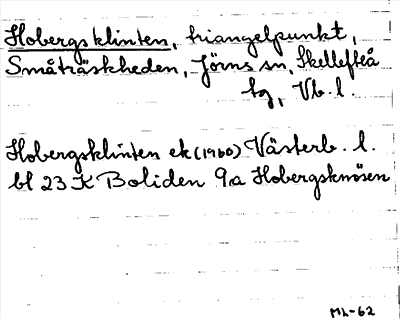 Hobergsklinten, triangelpunkt,
Småträskheden, Jörns sn, Skellefteå
tg, Vb. l.
Hobergsklinten ek (1960) Västerb. l.
bl 23 K Boliden 9a Hobergsknösen
ML-62